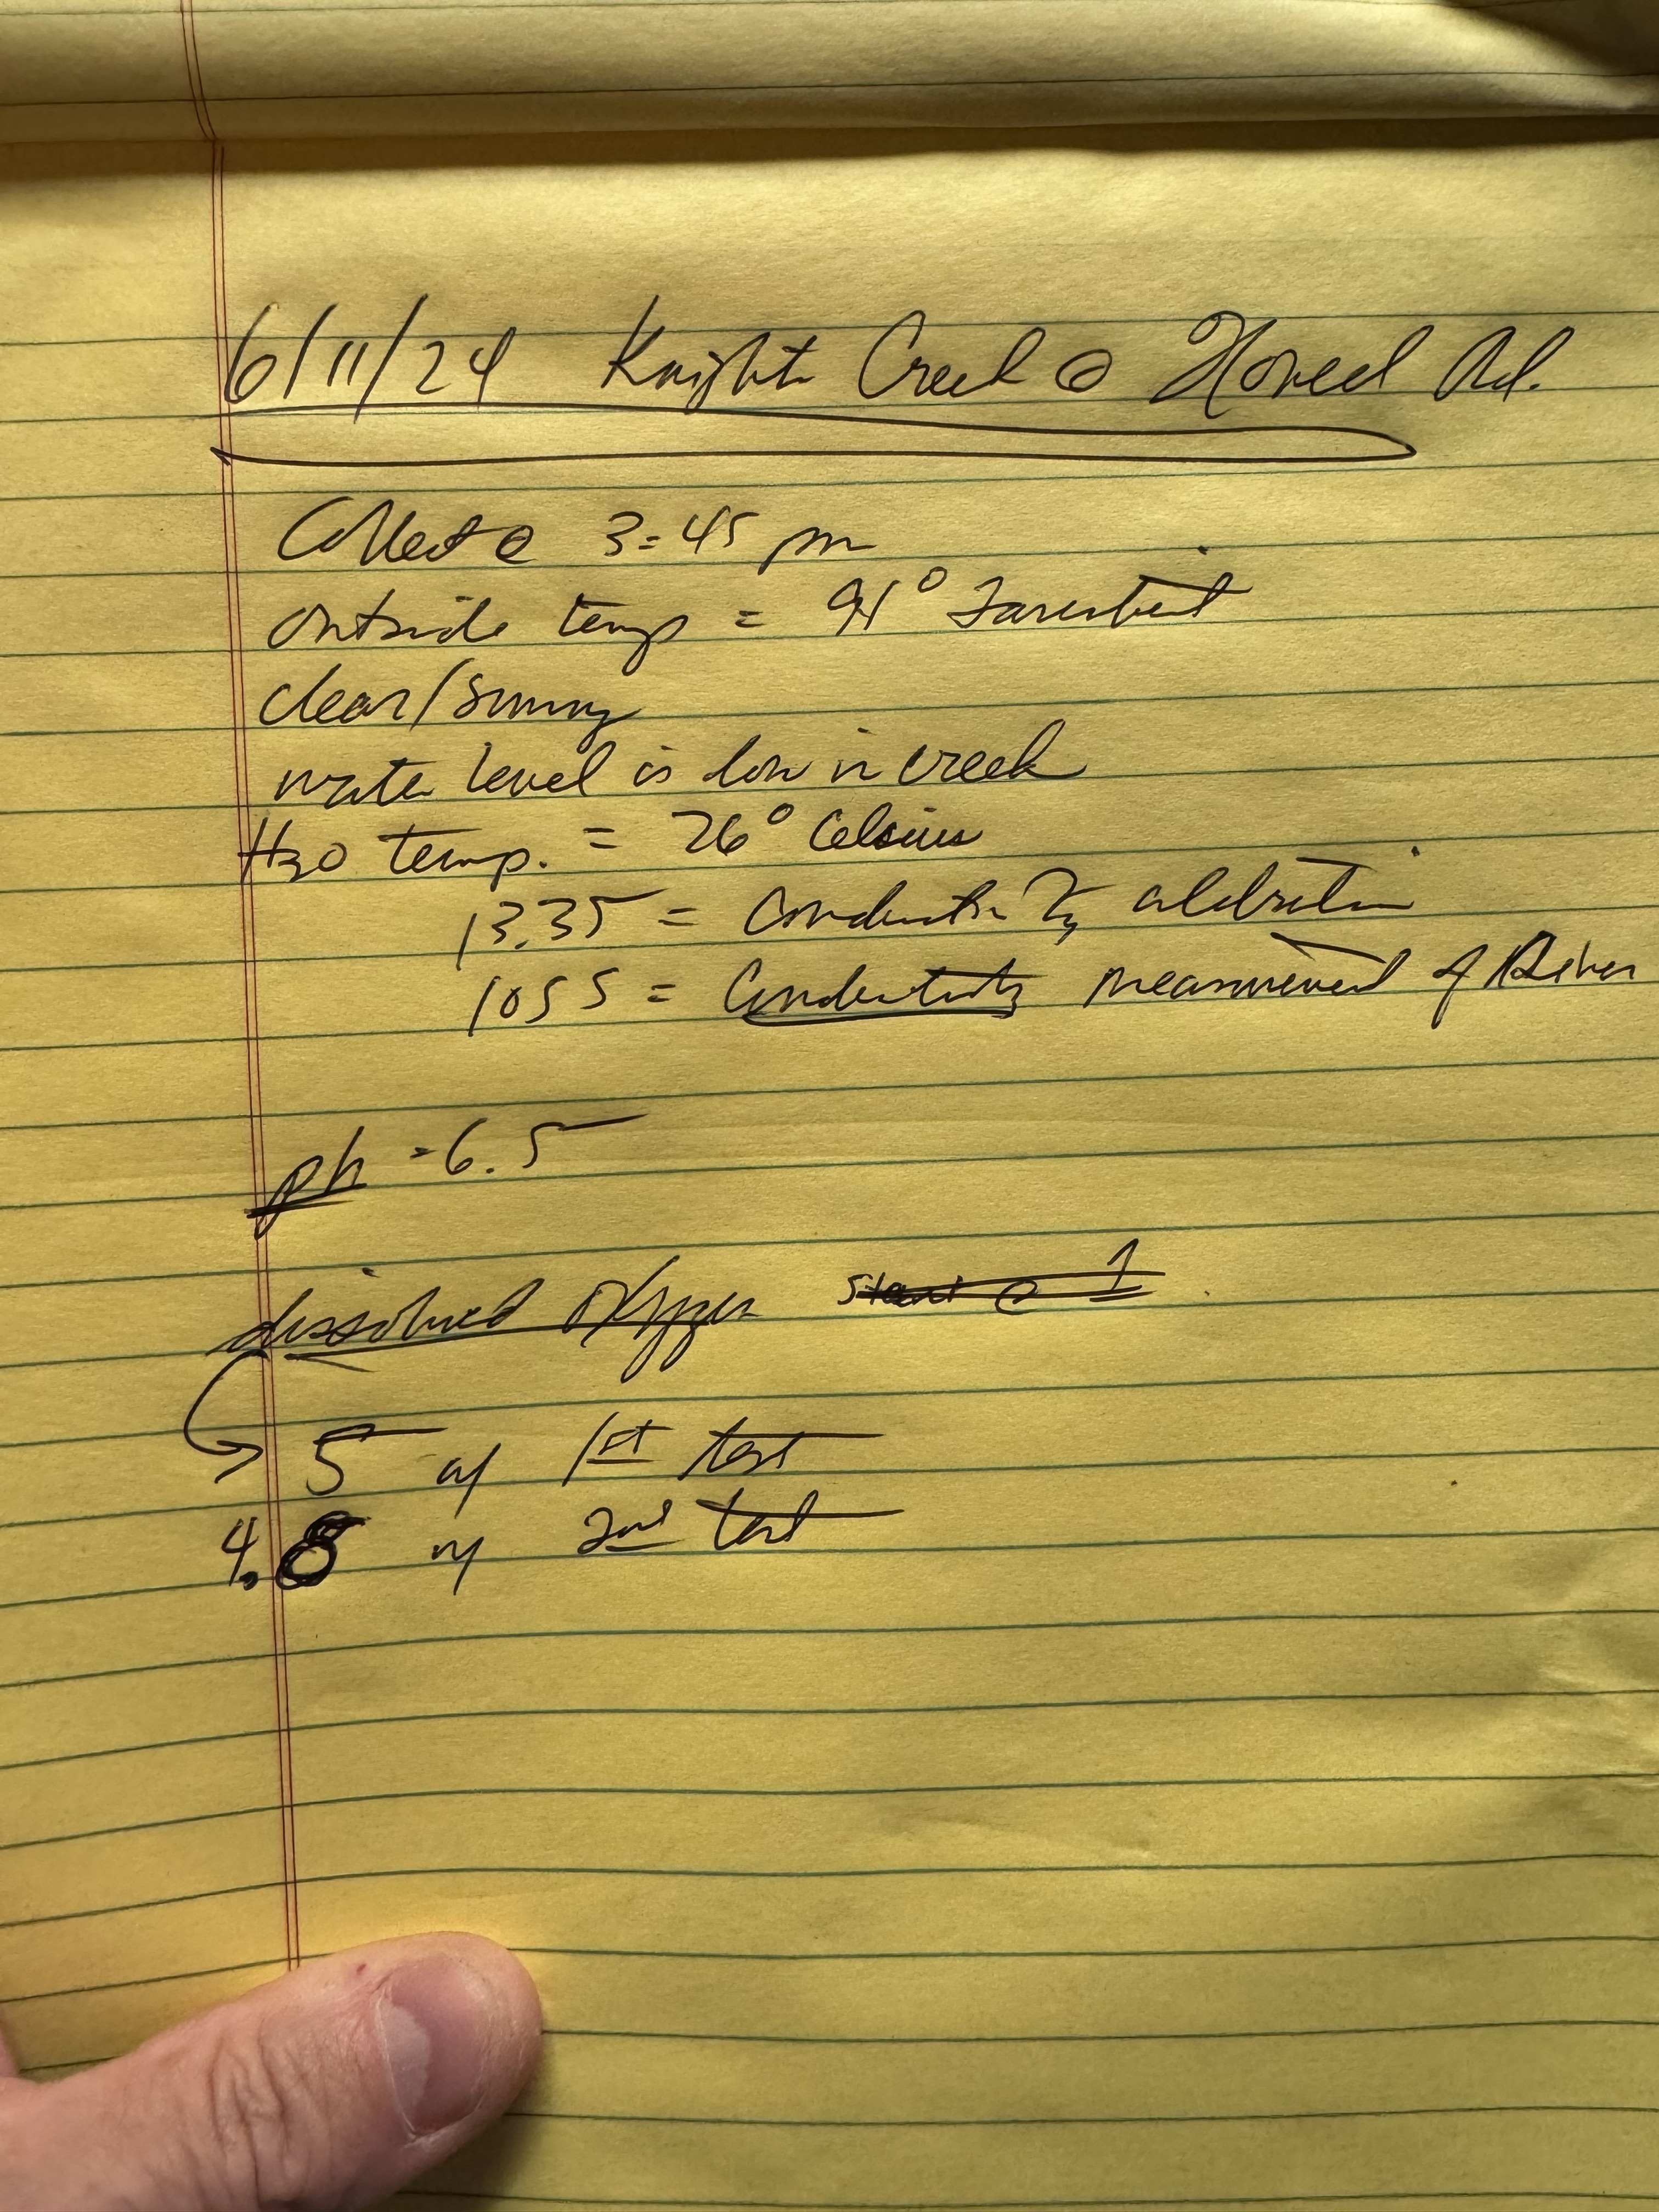 6/11/24 Knight Creek @ Howell Rd.
Collected @ 3:45 pm
Outside temp = 91° Farenheit
Clear/Sunny
water level is low in creek
H2O temp. = 26° Celsius
13.35 = Conductivity calibration
105 5 = Conductivity measurement of
ph = 6.5
dissolved Oxygen
5 mg 1st test
4.8 mg 2nd test